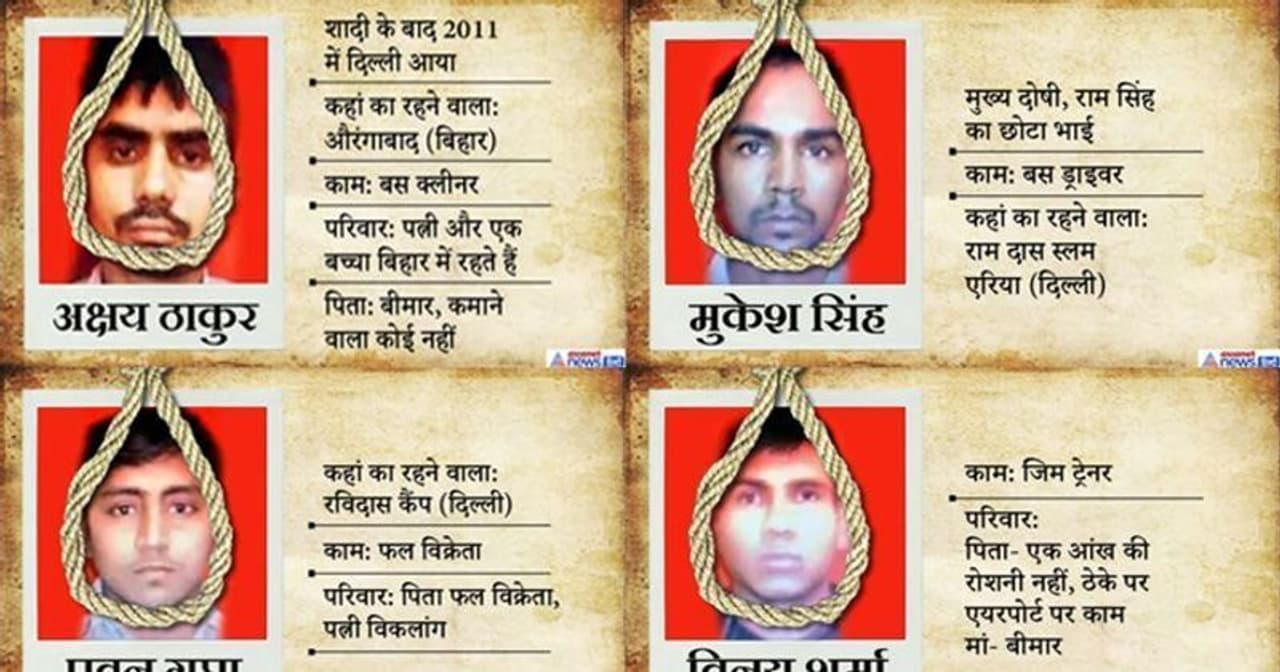 शादी के बाद 2011
में दिल्ली आया
कहां का रहने वाला:
औरंगाबाद (बिहार)
काम: बस क्लीनर
परिवार: पत्नी और एक
बच्चा बिहार में रहते हैं
पिता: बीमार, कमाने
वाला कोई नहीं
अक्षय ठाकुर
news
मुख्य दोषी, राम सिंह
का छोटा भाई
काम: बस ड्राइवर
कहां का रहने वाला:
राम दास स्लम
एरिया (दिल्ली)
मुकेश सिंह
news
कहां का रहने वाला:
रविदास कैंप (दिल्ली)
काम: फल विक्रेता
परिवार: पिता फल विक्रेता,
पत्नी विकलांग
पवन गुप्ता
काम: जिम ट्रेनर
परिवार:
पिता- एक आंख की
रोशनी नहीं, ठेके पर
एयरपोर्ट पर काम
मां- बीमार
विनय शर्मा